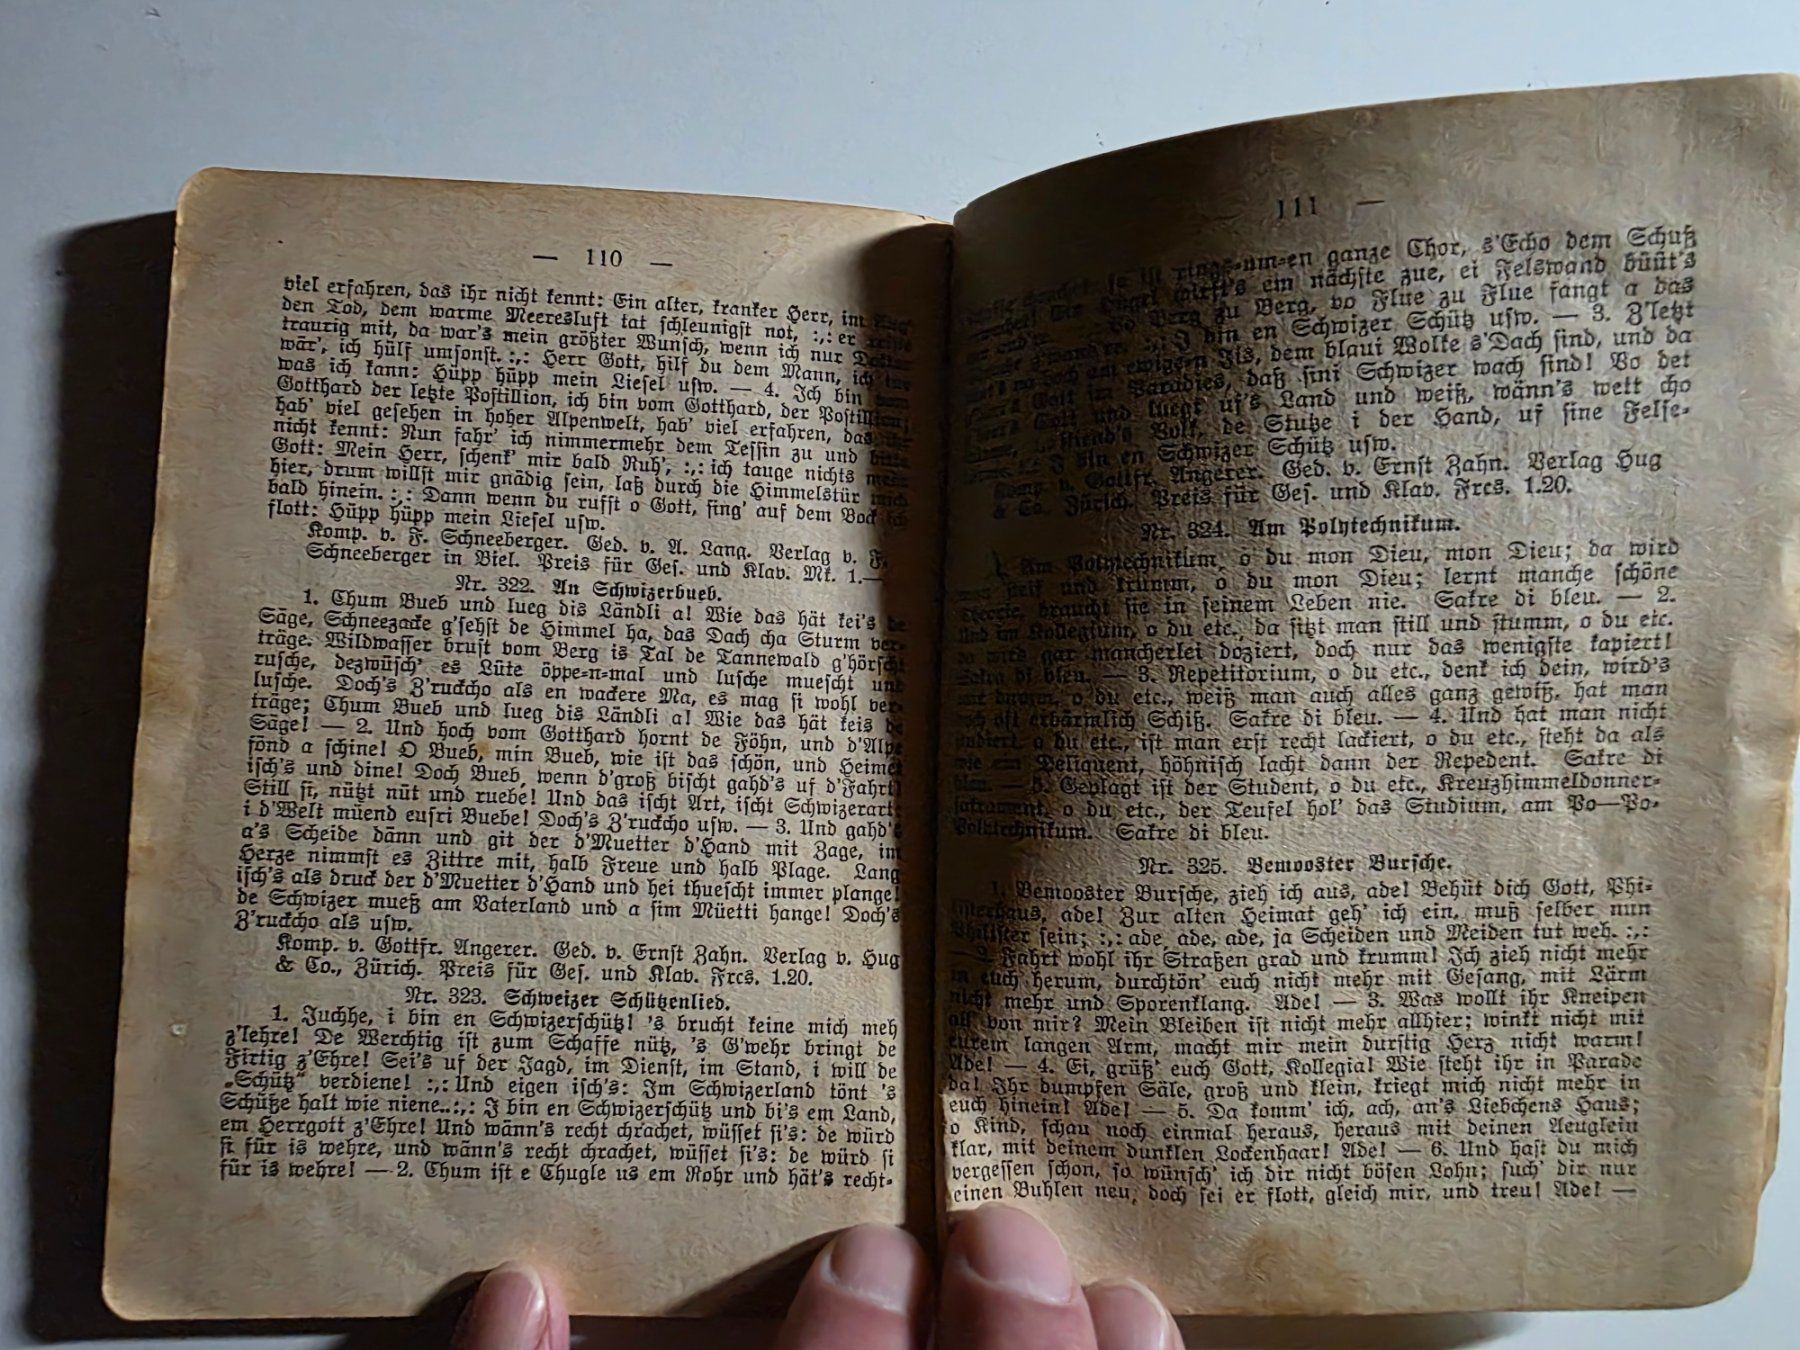 — 110 —
viel erfahren, das ihr nicht kennt: Ein alter, kranker Herr, im
den Tod, dem warme Meeresluft tat schleunigst not, :,: er
traurig mit, da war's mein größter Wunsch, wenn ich nur
wär', ich hülf umsonst. :,: Herr Gott, hilf du dem Mann, ich tue
was ich kann: Hüpp hüpp mein Liesel usw. — 4. Ich bin vom
Gotthard der letzte Postillion, ich bin vom Gotthard, der Postillion;
hab' viel gesehen in hoher Alpenwelt, hab' viel erfahren, das ihr
nicht kennt: Nun fahr' ich nimmermehr dem Tessin zu und bitte
Gott: Mein Herr, schenk' mir bald Ruh', :,: ich tauge nichts mehr
hier, drum willst mir gnädig sein, laß durch die Himmelstür mich
bald hinein. :,: Dann wenn du rufst o Gott, sing' auf dem Bock ich
flott: Hüpp hüpp mein Liesel usw.
Komp. v. F. Schneeberger. Ged. v. A. Lang. Verlag v. F.
Schneeberger in Biel. Preis für Ges. und Klav. Mk. 1.—
Nr. 322. An Schwizerbueb.
1. Chum Bueb und lueg dis Ländli a! Wie das hät kei's de
Säge, Schneezacke g'sehst de Himmel ha, das Dach cha Sturm ver-
träge. Wildwasser brust vom Berg is Tal de Tannewald g'hörscht
rusche, dezwüsch' es Lüte öppe-n-mal und lusche muescht und
lusche. Doch's Z'ruckcho als en wackere Ma, es mag si wohl ver-
träge; Chum Bueb und lueg dis Ländli a! Wie das hät keis de
Säge! — 2. Und hoch vom Gotthard hornt de Föhn, und d'Alpe
fönd a schine! O Bueb, min Bueb, wie ist das schön, und Heimet
isch's und dine! Doch Bueb, wenn d'groß bischt gahd's uf d'Fahrt!
Still si, nützt nüt und ruebe! Und das ischt Art, ischt Schwizerart:
i d'Welt müend eusri Buebe! Doch's Z'ruckcho usw. — 3. Und gahd's
a's Scheide dänn und git der d'Muetter d'Hand mit Zage, im
Herze nimmst es Zittre mit, halb Freue und halb Plage. Lang
isch's als druck der d'Muetter d'Hand und hei thuescht immer plange!
de Schwizer mueß am Vaterland und a sim Müetti hange! Doch's
Z'ruckcho als usw.
Komp. v. Gottfr. Angerer. Ged. v. Ernst Zahn. Verlag v. Hug
& Co., Zürich. Preis für Ges. und Klav. Frcs. 1.20.
Nr. 323. Schweizer Schützenlied.
1. Juchhe, i bin en Schwizerschütz! 's brucht keine mich meh
z'lehre! De Werchtig ist zum Schaffe nütz, 's G'wehr bringt de
Firtig z'Ehre! Sei's uf der Jagd, im Dienst, im Stand, i will de
„Schütz“ verdiene! :,: Und eigen isch's: Im Schwizerland tönt 's
Schütze halt wie niene..:,: I bin en Schwizerschütz und bi's em Land,
em Herrgott z'Ehre! Und wänn's recht chrachet, wüsset si's: de würd
si für is wehre, und wänn's recht chrachet, wüsset si's: de würd si
für is wehre! — 2. Chum ist e Chugle us em Rohr und hät's recht-
— 111 —
so ist rings-um-en ganze Chor, s'Echo dem Schuß
wirft's ein nächste zue, ei Felswand büüt's
vo Berg zu Berg, vo Flue zu Flue fangt a das
I bin en Schwizer Schütz usw. — 3. Z'letzt
ewige-n Jis, dem blaui Wolke s'Dach sind, und da
Gott im Paradies, daß sini Schwizer wach sind! Vo det
und luegt uf's Land und weiß, wänn's wett cho
Volk, de Stutze i der Hand, uf sine Felse-
I bin en Schwizer Schütz usw.
Komp. v. Gottfr. Angerer. Ged. v. Ernst Zahn. Verlag Hug
& Co. Zürich. Preis für Ges. und Klav. Frcs. 1.20.
Nr. 324. Am Polytechnikum.
1. Am Polytechnikum, o du mon Dieu, mon Dieu; da wird
man steif und krumm, o du mon Dieu; lernt manche schöne
Theorie, braucht sie in seinem Leben nie. Sakre di bleu. — 2.
Und im Kollegium, o du etc., da sitzt man still und stumm, o du etc.
da wird gar mancherlei doziert, doch nur das wenigste kapiert!
Sakre di bleu. — 3. Repetitorium, o du etc., denk ich dein, wird's
mir dumm, o du etc., weiß man auch alles ganz gewiß, hat man
doch oft erbärmlich Schiß. Sakre di bleu. — 4. Und hat man nicht
studiert, o du etc., ist man erst recht lackiert, o du etc., steht da als
wie ein Deliquent, höhnisch lacht dann der Repedent. Sakre di
bleu. — 5. Geplagt ist der Student, o du etc., Kreuzhimmeldonner-
sakrament, o du etc., der Teufel hol' das Studium, am Po—Po-
Polytechnikum. Sakre di bleu.
Nr. 325. Bemooster Bursche.
1. Bemooster Bursche, zieh ich aus, ade! Behüt dich Gott, Phi-
listerhaus, ade! Zur alten Heimat geh' ich ein, muß selber nun
Philister sein; :,: ade, ade, ade, ja Scheiden und Meiden tut weh. :,:
— 2. Fahrt wohl ihr Straßen grad und krumm! Ich zieh nicht mehr
in euch herum, durchtön' euch nicht mehr mit Gesang, mit Lärm
nicht mehr und Sporenklang. Ade! — 3. Was wollt ihr Kneipen
all von mir? Mein Bleiben ist nicht mehr allhier; winkt nicht mit
eurem langen Arm, macht mir mein durstig Herz nicht warm!
Ade! — 4. Ei, grüß' euch Gott, Kollegia! Wie steht ihr in Parade
da! Ihr dumpfen Säle, groß und klein, kriegt mich nicht mehr in
euch hinein! Ade! — 5. Da komm' ich, ach, an's Liebchens Haus;
o Kind, schau noch einmal heraus, heraus mit deinen Aeuglein
klar, mit deinem dunklen Lockenhaar! Ade! — 6. Und hast du mich
vergessen schon, so wünsch' ich dir nicht bösen Lohn; such' dir nur
einen Buhlen neu, doch sei er flott, gleich mir, und treu! Ade! —